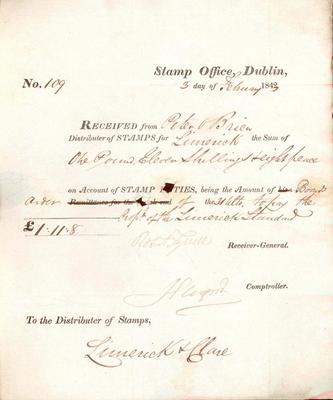 Stamp Office, Dublin,
No. 109
3 day of February 1843
RECEIVED from Peter O'Brien
Distributer of STAMPS for Limerick the Sum of
One Pound Eleven Shillings & eight pence
on Account of STAMP DUTIES, being the Amount of Board
order Remittance for the of the 31 Ulto. to pay the
Propr. of the Limerick Standard
£1.11.8
Receiver-General.
Comptroller.
To the Distributer of Stamps,
Limerick & Clare